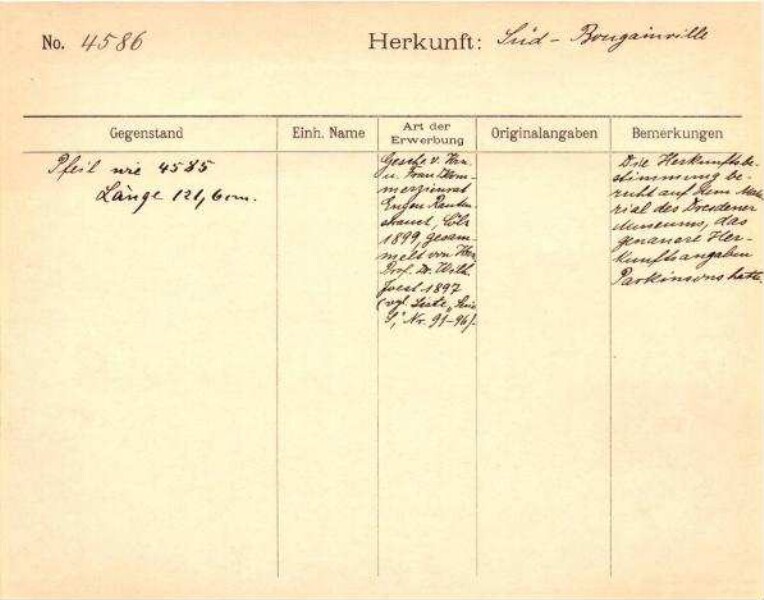 No. 4586
Herkunft: Süd - Bougainville
Gegenstand
Einh. Name
Art der Erwerbung
Originalangaben
Bemerkungen
Pfeil wie 4585
Länge 121,6 cm.
Gesch. v. Hrn.
u. Frau Kom-
merzienrat
Eugen Rauten-
strauch, Cöln
1899, gesam-
melt von Hrn
Prof. Dr. Wilh.
Joest 1897
(vgl. Liste
S, Nr. 91-96).
Die Herkunftsbe-
stimmung be-
ruht auf dem Mate-
rial des Dresdener
Museums, das
genauere Her-
kunftsangaben
Parkinsons hatte.